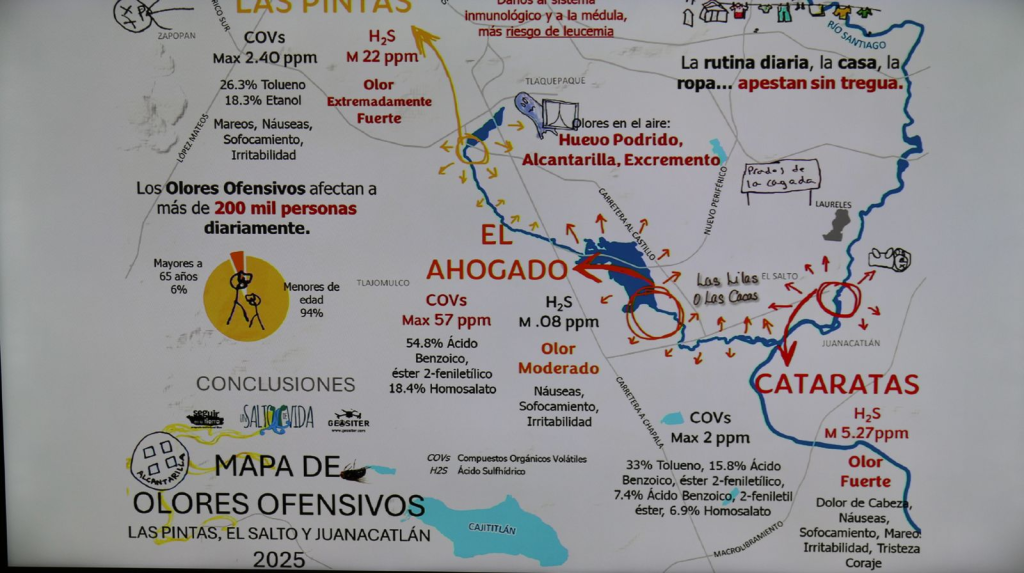 LAS PINTAS
ZAPOPAN
COVs
Max 2.40 ppm
26.3% Tolueno
18.3% Etanol
Mareos, Náuseas,
Sofocamiento,
Irritabilidad
H₂S
M 22 ppm
Olor
Extremadamente
Fuerte
LÓPEZ MATEOS
Daños al sistema
inmunológico y a la médula,
más riesgo de leucemia
RÍO SANTIAGO
La rutina diaria, la casa, la
ropa... apestan sin tregua.
TLAQUEPAQUE
Olores en el aire:
Huevo Podrido,
Alcantarilla, Excremento
Prados de
la cagada
LAURELES
NUEVO PERIFÉRICO
CARRETERA AL CASTILLO
Los Olores Ofensivos afectan a
más de 200 mil personas
diariamente.
Mayores a
65 años
6%
Menores de
edad
94%
TLAJOMULCO
EL
AHOGADO
COVs
Max 57 ppm
54.8% Ácido
Benzoico,
éster 2-feniletílico
18.4% Homosalato
H₂S
M .08 ppm
Olor
Moderado
Náuseas,
Sofocamiento,
Irritabilidad
Las Lilas
o Las Cacas
EL SALTO
JUANACATLÁN
CARRETERA A CHAPALA
CATARATAS
COVs
Max 2 ppm
33% Tolueno, 15.8% Ácido
Benzoico, éster 2-feniletílico,
7.4% Ácido Benzoico, 2-feniletil
éster, 6.9% Homosalato
H₂S
M 5.27ppm
Olor
Fuerte
Dolor de Cabeza,
Náuseas,
Sofocamiento, Mareo
Irritabilidad, Tristeza
Coraje
MACROLIBRAMIENTO
CONCLUSIONES
seguir
UN SALTO DE VIDA
GEOSITER
www.geositer.com
ALCANTARILLA
COVs Compuestos Orgánicos Volátiles
H2S Ácido Sulfhídrico
MAPA DE
OLORES OFENSIVOS
LAS PINTAS, EL SALTO Y JUANACATLÁN
2025
CAJITITLÁN